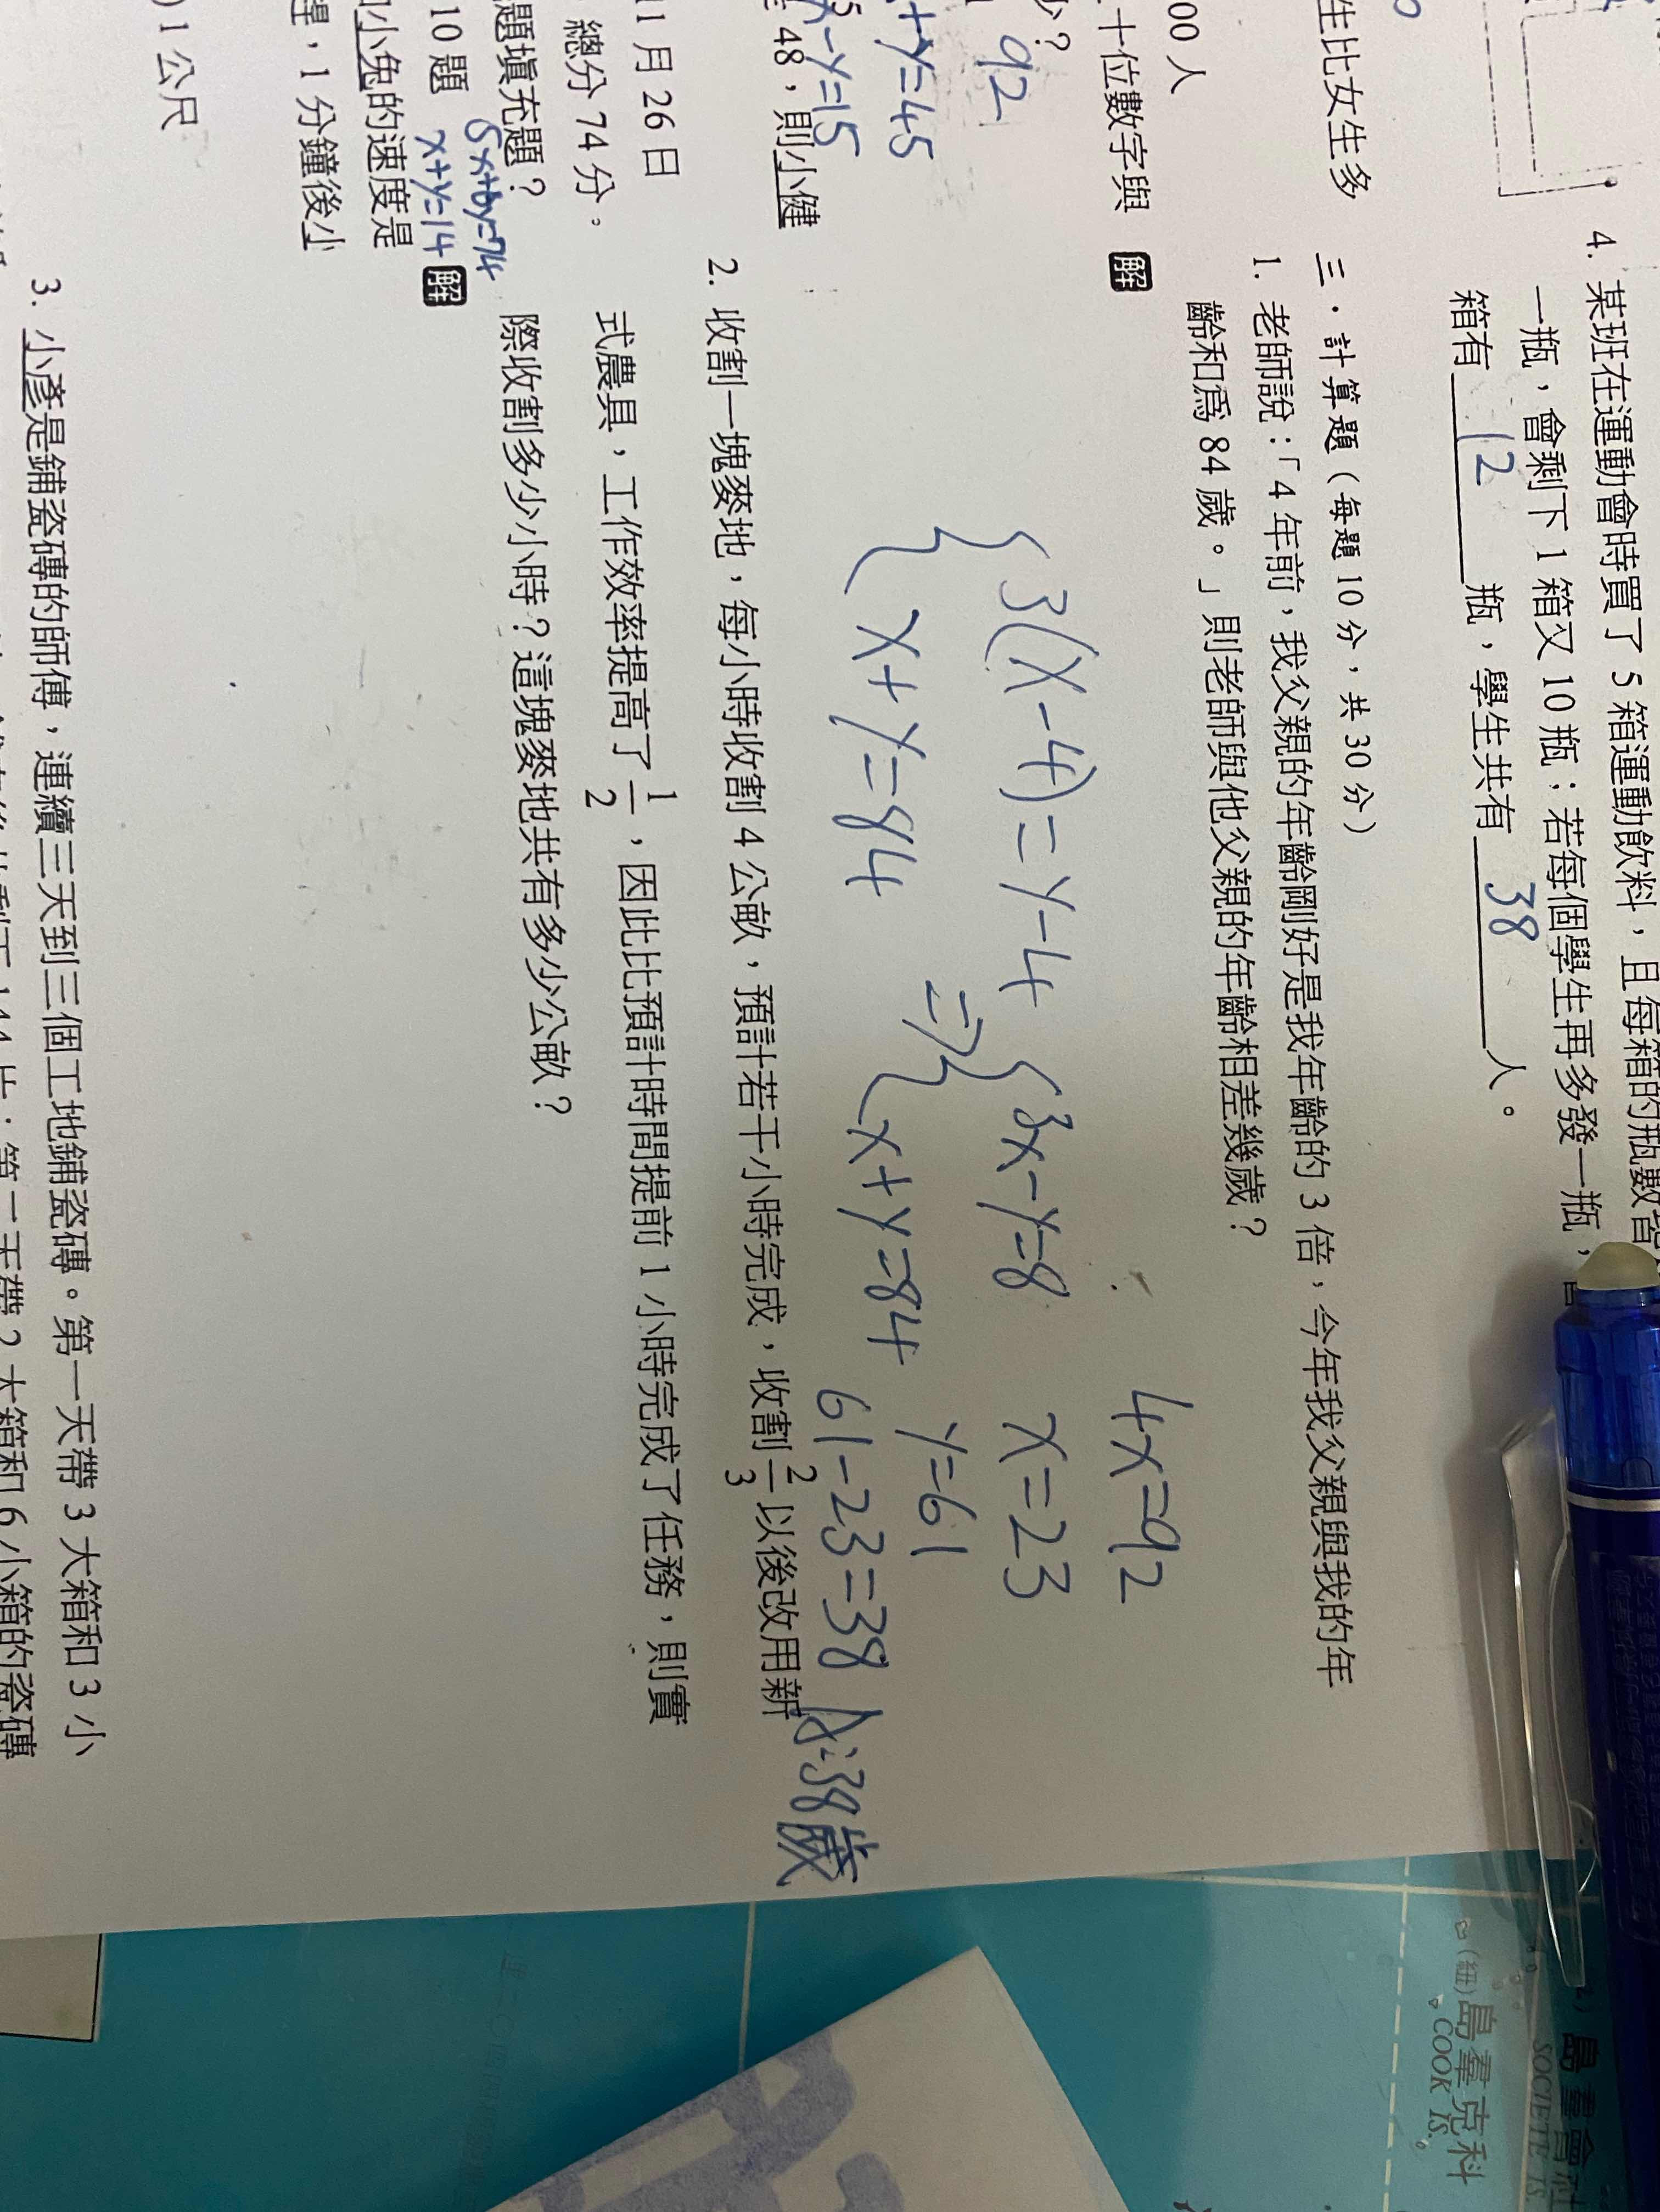 生比女生多
00 人
十位數字與
少？
92
x+y=45
48，則小健
x-y=15
11 月 26 日
總分 74 分。
題填充題？
5x+6y=74
10 題
x+y=14
小兔的速度是
，1 分鐘後小
)1 公尺
4. 某班在運動會時買了 5 箱運動飲料，且每箱的瓶數皆
一瓶，會剩下 1 箱又 10 瓶；若每個學生再多發一瓶，
箱有 12 瓶，學生共有 38 人。
三．計算題（每題 10 分，共 30 分）
1. 老師說：「4 年前，我父親的年齡剛好是我年齡的 3 倍，今年我父親與我的年
齡和為 84 歲。」則老師與他父親的年齡相差幾歲？
解
4x=92
{3(x-4)=y-4
{3x-y=8
x=23
⇒
y=61
{x+y=84
{x+y=84
61-23=38
A:38歲
2. 收割一塊麥地，每小時收割 4 公畝，預計若干小時完成，收割 2/3 以後改用新
式農具，工作效率提高了 1/2，因此比預計時間提前 1 小時完成了任務，則實
際收割多少小時？這塊麥地共有多少公畝？
解
3. 小彥是鋪瓷磚的師傅，連續三天到三個工地鋪瓷磚。第一天帶 3 大箱和 3 小
144 片；第二天帶 2 大箱和 6 小箱的瓷磚
(紐)島羣克科
COOK IS.
島羣會社
SOCIETE IS.